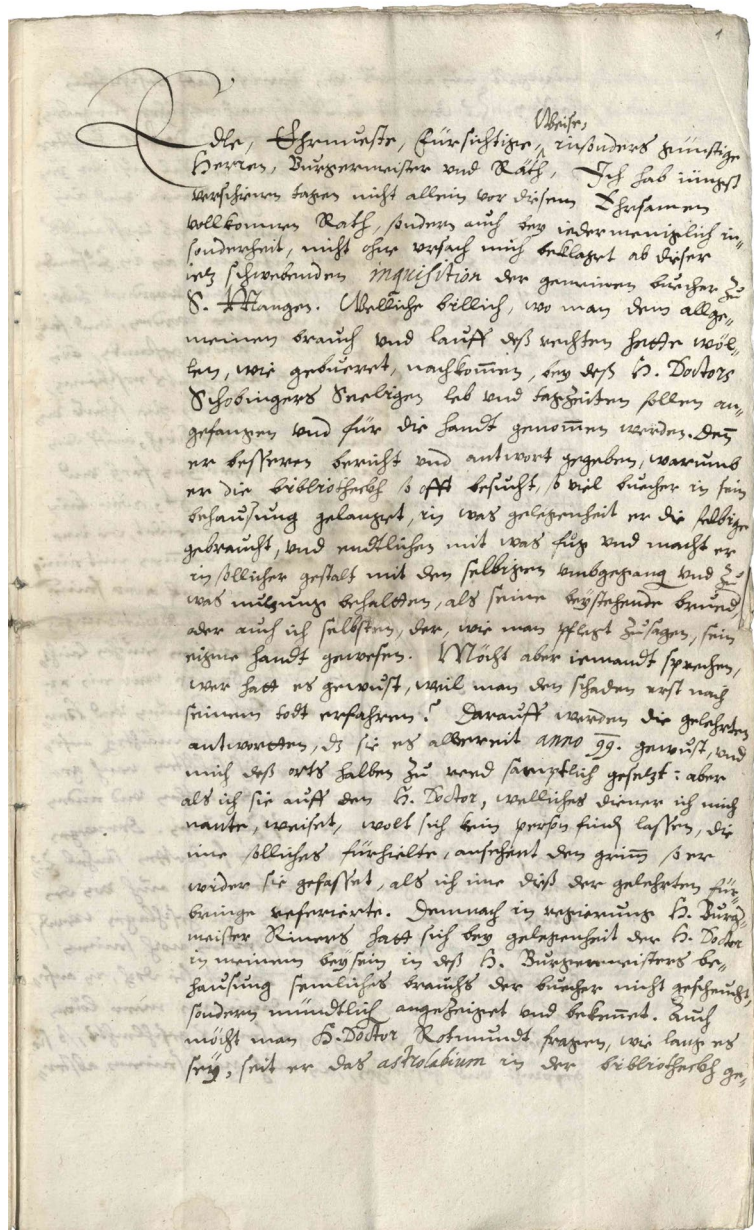 1
Weise,
Edle, Ehrnueste, Fürsichtige, insonders günstige
Herren, Burgermeister vnd Räth, Ich hab iüngst
verschinen tagen nicht allein vor disem Ehrsamen
vollkomnen Rath, sondern auch bey iedermenigklich in-
sonderheit, nicht ohne vrsach mich beklaget ab diser
ietz schwebenden inquisition der gemeinen buecher zu
S. Mangen. Welliche billich, wo man dem allge-
meinen brauch vnd lauff deß rechten hatte wöl-
len, wie gebueret, nachkommen, bey deß H. Doctors
Schobingers Seeligen leb vnd tagzeiten sollen an-
gefangen vnd für die handt genommen werden. Denn
er besseren bericht vnd antwort gegeben, warumb
er die bibliotheckh so offt besucht, so viel buecher in sein
behausung gelanget, in was gelegenheit er die selbige
gebraucht, vnd endtlichen mit was fug vnd macht er
in sollicher gestalt mit den selbigen vmbgegang vnd zu
was nutzung behaltten, als seine beystehende brued
oder auch ich selbsten, der, wie man pflegt zusagen, sein
eigne handt gewesen. Möcht aber iemandt sprechen,
wer hatt es gewust, weil man den schaden erst nach
seinem todt erfahren? Darauff werden die gelehrten
antwortten, dz sie es albereit anno 99. gewust, vnd
mich deß orts halben zu reed samptlich gesetzt: aber
als ich sie auff den H. Doctor, welliches diener ich mich
nante, weiset, wolt sich kein person find lassen, die
ime solliches fürhielte, ansehent den grimm so er
wider sie gefasset, als ich ime diß der gelehrten für-
bringe referierte. Demnach in regierung H. Burg-
meister Riners hatt sich bey gelegenheit der H. Doctor
in meinem beysein in deß H. Burgermeisters be-
hausung semliches brauchs der buecher nicht gescheucht,
sondern mündtlich angezeiget vnd bekennet. Auch
möcht man H. Doctor Rotmundt fragen, wie lang es
sey, seit er das astrolabium in der bibliotheckh ge-